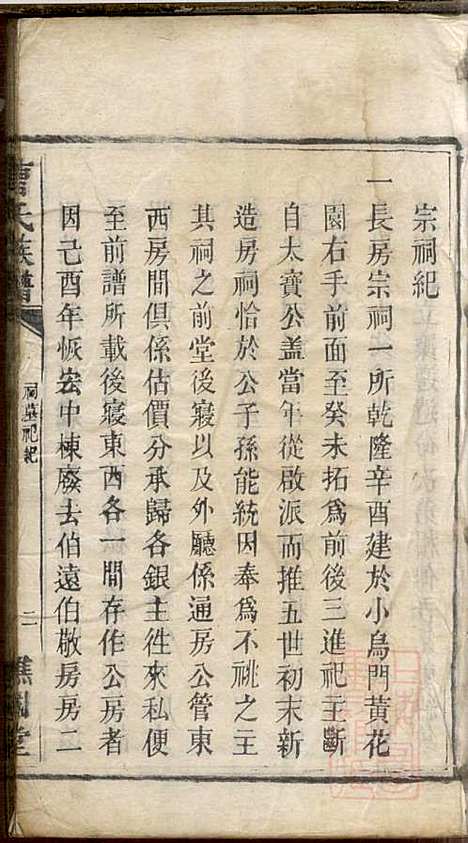 宗祠紀
一長房宗祠一所乾隆辛酉建於小烏門黃花
園右手前面至癸未拓爲前後三進祀主斷
自太寶公蓋當年從啟派而推五世初未新
造房祠恰於公子孫能統因奉爲不祧之主
其祠之前堂後寢以及外廳係通房公管東
西房間俱係估價分承歸各銀主徃來私便
至前譜所載後寢東西各一間存作公房者
因己酉年恢宏中棟廢去伯遠伯敬房房二
氏族譜
祠墓祀紀
二
堂